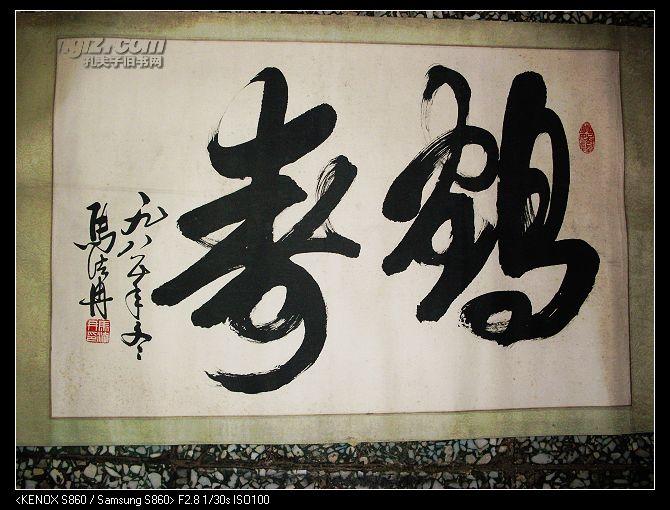 gjz.com
孔夫子旧书网
鹤寿
一九八六年冬
馬法舟
<KENOX S860 / Samsung S860> F2.8 1/30s ISO100